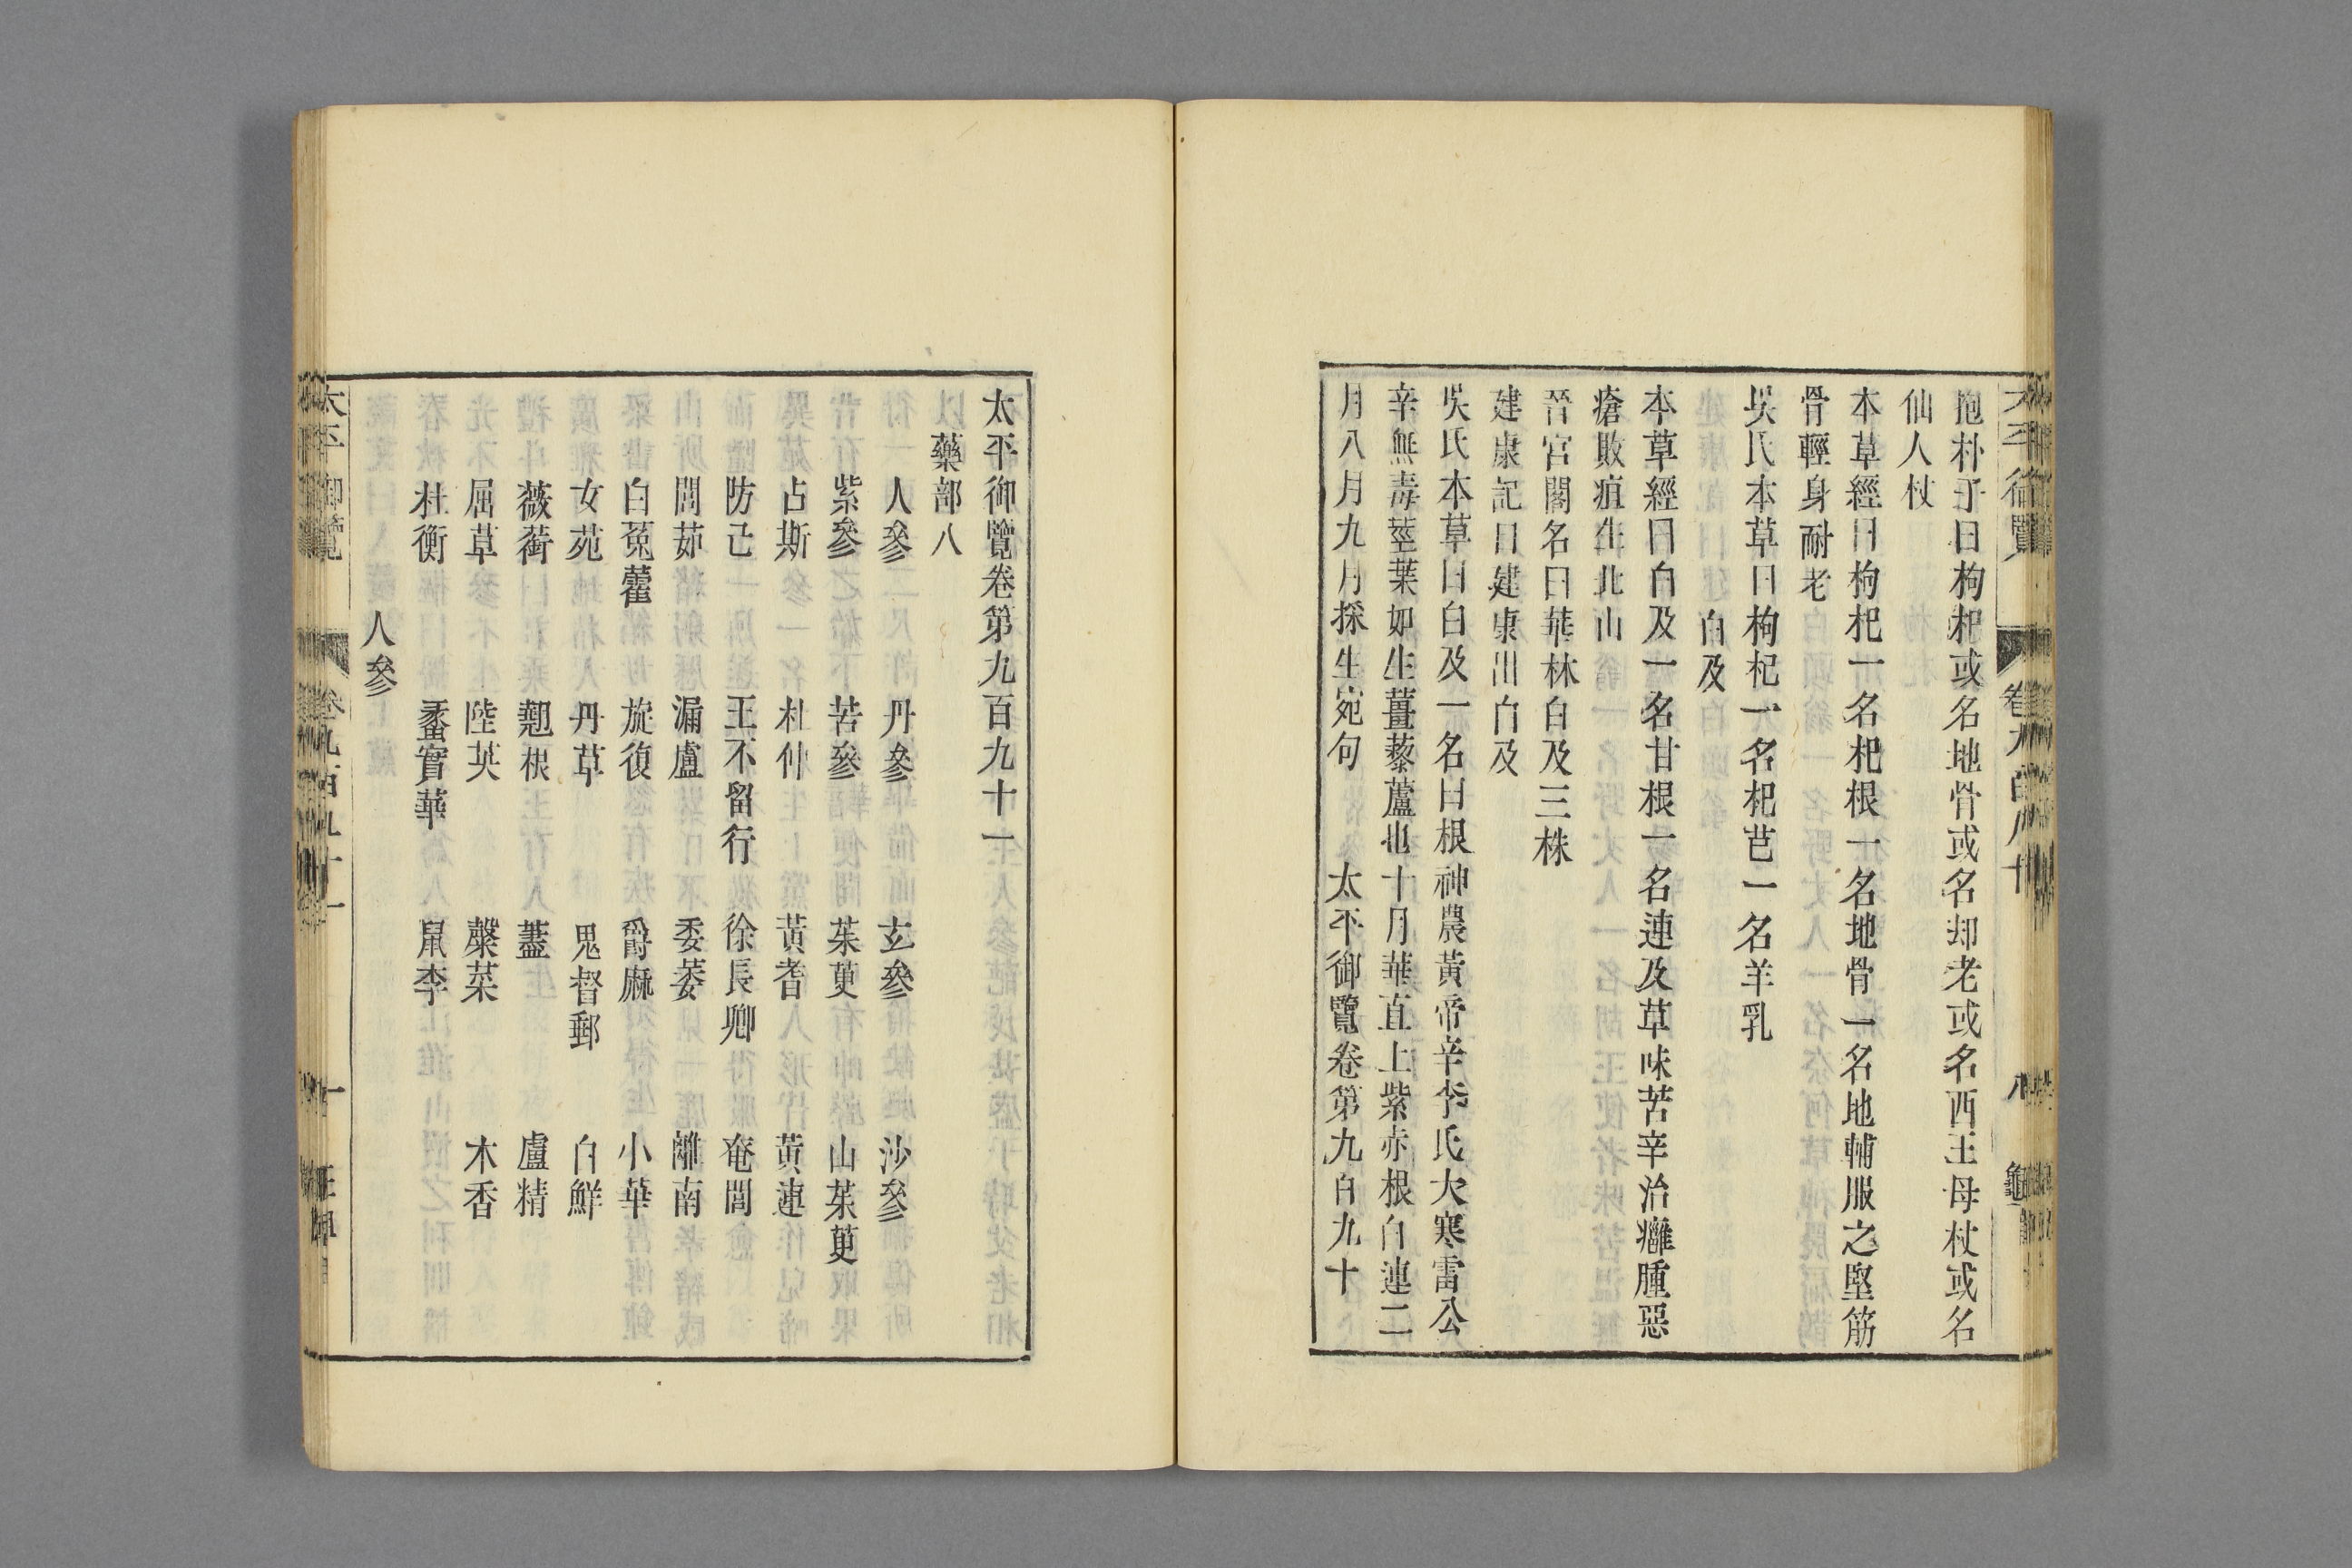 抱朴子曰枸杞或名地骨或名却老或名西王母杖或名
仙人杖
本草經曰枸杞一名杞根一名地骨一名地輔服之堅筋
骨輕身耐老
吳氏本草曰枸杞一名杞芭一名羊乳
白及
本草經曰白及一名甘根一名連及草味苦辛治癰腫惡
瘡敗疽生北山
晉宮閣名曰華林白及三株
建康記曰建康出白及
吳氏本草曰白及一名曰根神農黃帝辛李氏大寒雷公
辛無毒莖葉如生薑藜蘆也十月華直上紫赤根白連二
月八月九月採生宛句
太平御覽卷第九百九十
太平御覽卷第九百九十一
藥部八
人參 丹參 玄參 沙參
紫參 苦參 茱萸 山茱萸
占斯 杜仲 黃耆 黃連
防己 王不留行 徐長卿 奄閭
閭茹 漏盧 委萎 離南
白菟藿 旋復 爵麻 小華
女苑 丹草 鬼督郵 白鮮
薇蕪 翹根 藎 盧精
屈草 陸英 蘖菜 木香
杜衡 蠡實華 鼠李
人參
太平御覽 卷九百九十一 一